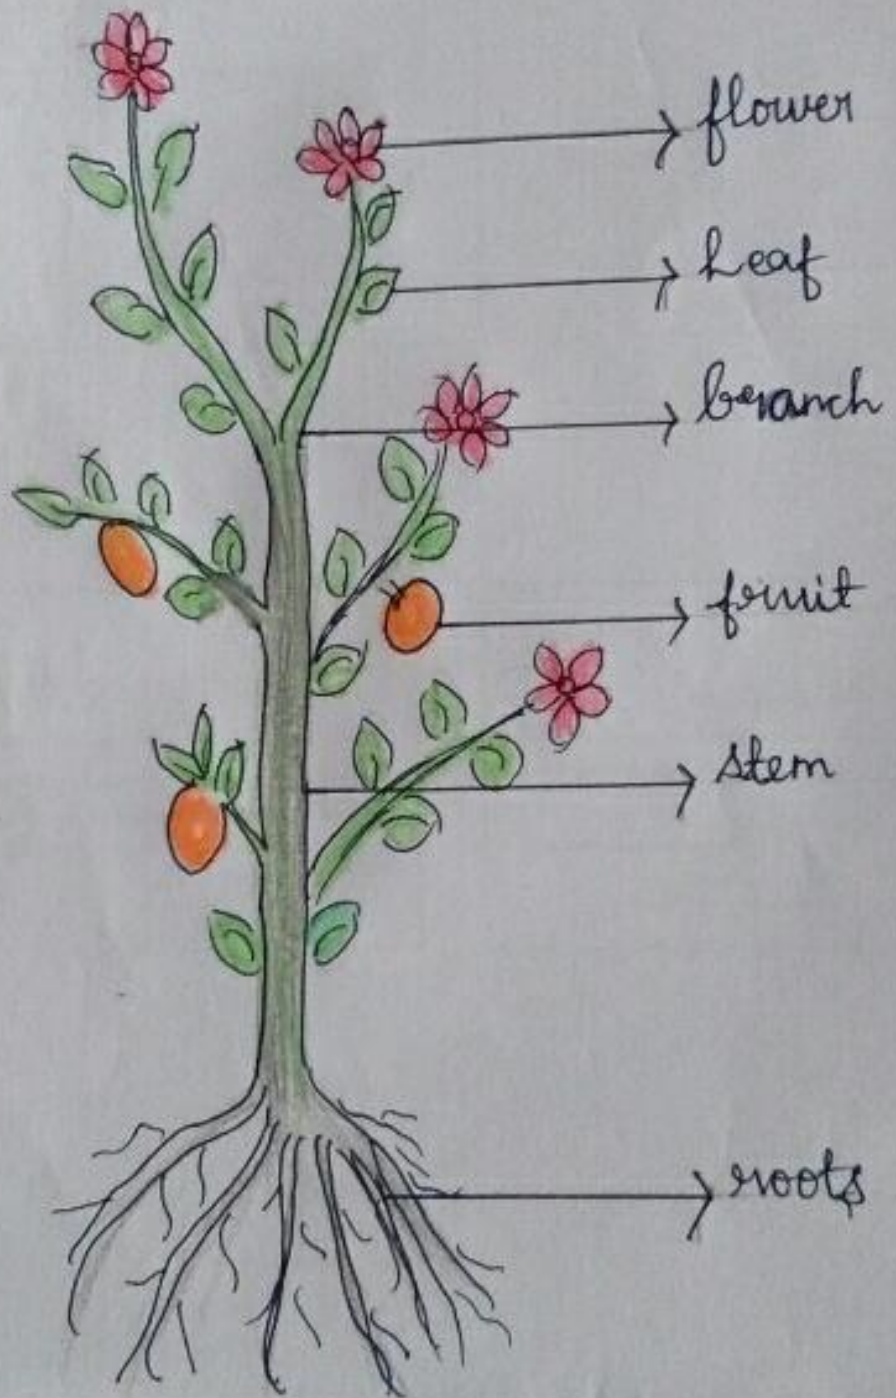 flower
leaf
branch
fruit
stem
roots